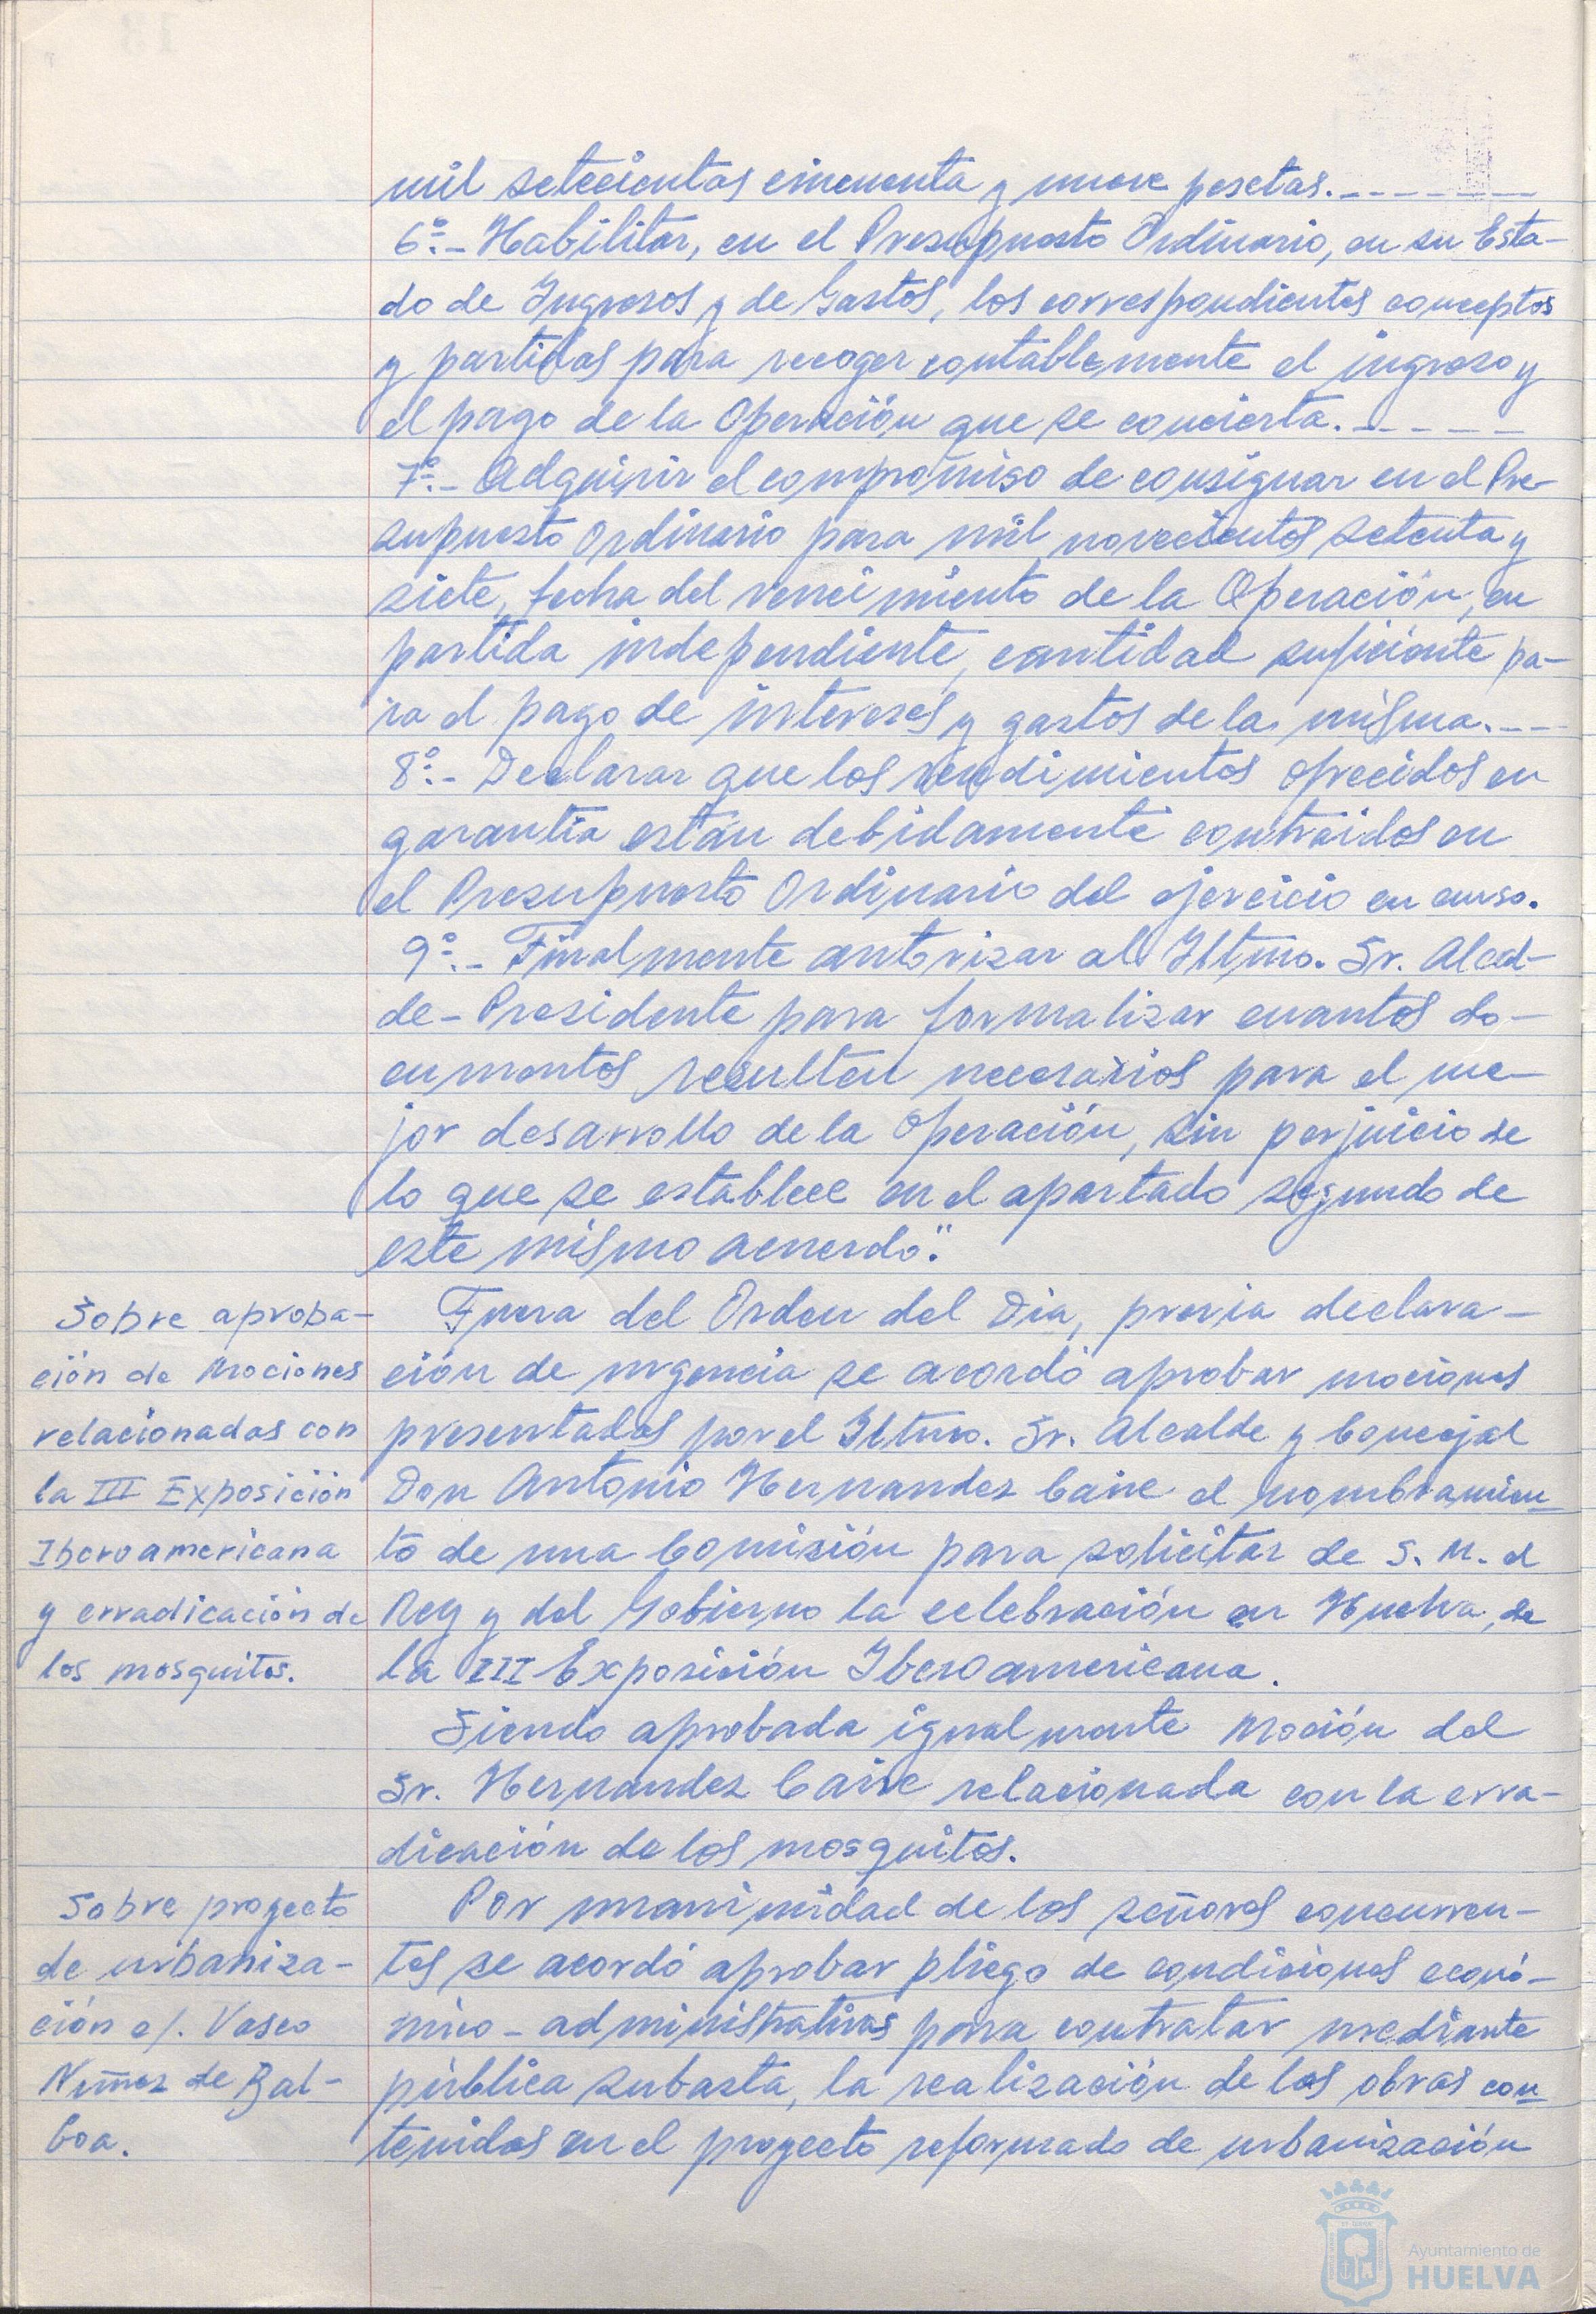 mil setecientas cincuenta y nueve pesetas.-------
6º.- Habilitar, en el Presupuesto Ordinario, en su Esta-
do de Ingresos y de Gastos, los correspondientes conceptos
y partidas para recoger contablemente el ingreso y
el pago de la Operación que se concierta.------
7º.- Adquirir el compromiso de consignar en el Pre-
supuesto Ordinario para mil novecientos setenta y
siete, fecha del vencimiento de la Operación, en
partida independiente, cantidad suficiente pa-
ra el pago de intereses y gastos de la misma.---
8º.- Declarar que los rendimientos ofrecidos en
garantía están debidamente contraídos en
el Presupuesto Ordinario del ejercicio en curso.
9º.- Finalmente autorizar al Iltmo. Sr. Alcal-
de-Presidente para formalizar cuantos do-
cumentos resulten necesarios para el me-
jor desarrollo de la Operación, sin perjuicio de
lo que se establece en el apartado segundo de
este mismo acuerdo".
Sobre aproba-
ción de Mociones
relacionadas con
la III Exposición
Iberoamericana
y erradicación de
los mosquitos.
Fuera del Orden del Dia, previa declara-
ción de urgencia se acordó aprobar mociones
presentadas por el Iltmo. Sr. Alcalde y Concejal
Don Antonio Hernandez Caire el nombramien-
to de una Comisión para solicitar de S. M. el
Rey y del Gobierno la celebración en Huelva, de
la III Exposición Iberoamericana.
Siendo aprobada igualmente Moción del
Sr. Hernandez Caire relacionada con la erra-
dicación de los mosquitos.
Sobre proyecto
de urbaniza-
ción c/. Vasco
Nuñez de Bal-
boa.
Por unanimidad de los señores concurren-
tes se acordó aprobar pliego de condiciones econó-
mico-administrativas para contratar mediante
pública subasta, la realización de las obras con-
tenidas en el proyecto reformado de urbanización
Ayuntamiento de
HUELVA